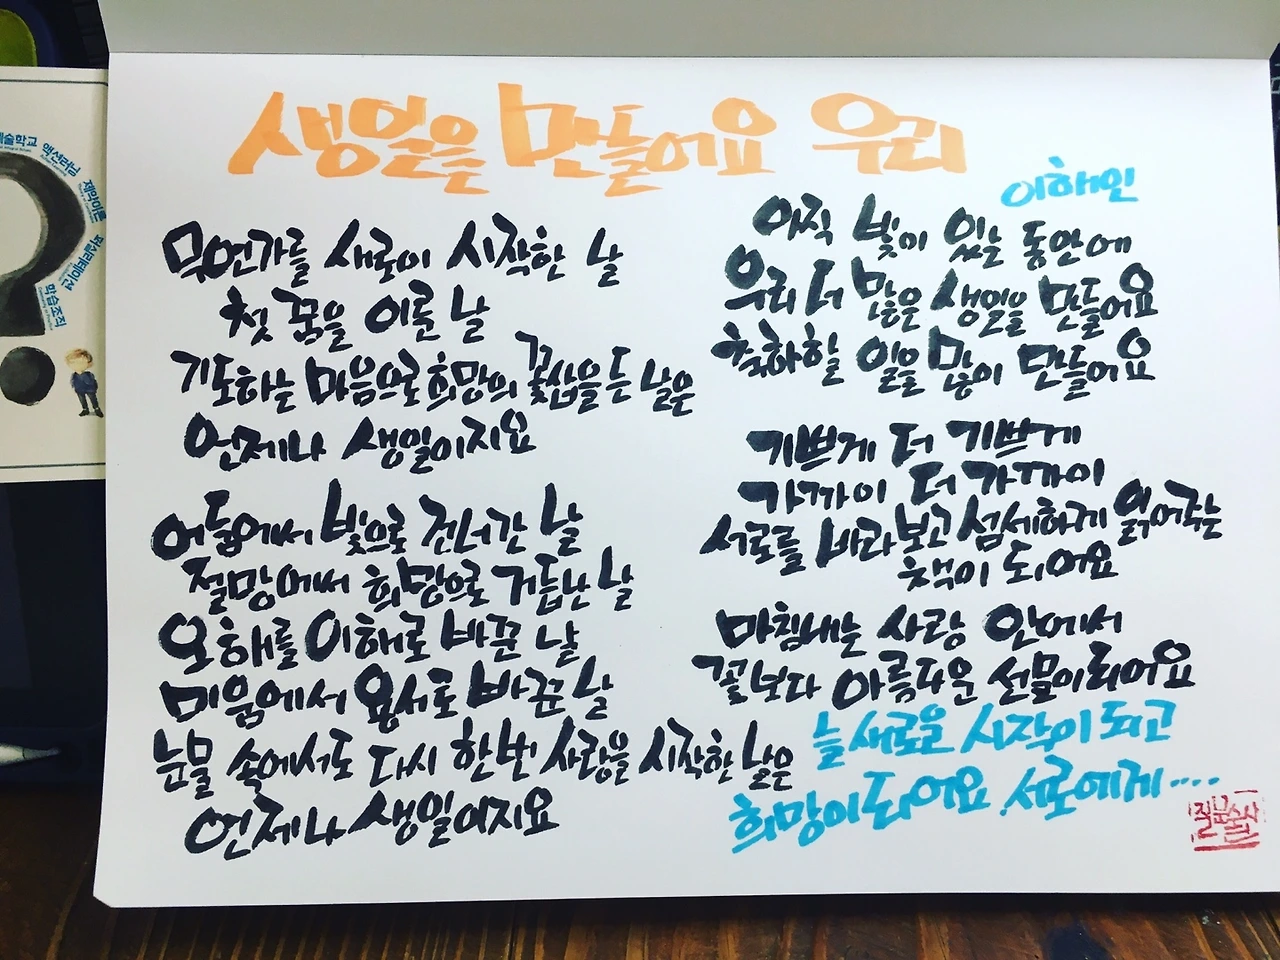 생일을 만들어요 우리
이해인
무언가를 새로이 시작한 날
첫 꿈을 이룬 날
기도하는 마음으로 희망의 꽃삽을 든 날은
언제나 생일이지요
어둠에서 빛으로 건너간 날
절망에서 희망으로 거듭난 날
오해를 이해로 바꾼 날
미움에서 용서로 바뀐 날
눈물 속에서도 다시 한번 사랑을 시작한 날은
언제나 생일이지요
아직 빛이 있는 동안에
우리 더 많은 생일을 만들어요
축하할 일을 많이 만들어요
기쁘게 더 기쁘게
가까이 더 가까이
서로를 바라보고 섬세하게 읽어주는
책이 되어요
마침내는 사랑 안에서
꽃보다 아름다운 선물이 되어요
늘 새로운 시작이 되고
희망이 되어요 서로에게....
질문술사
예술학교
액션러닝
제약이론
퍼실리테이션
학습조직